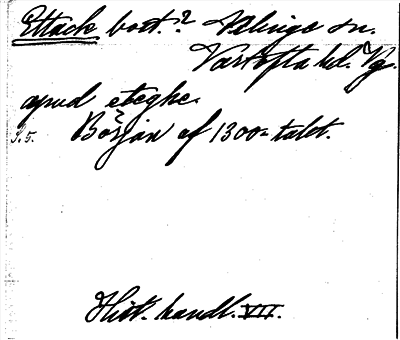 Ettack bort.? Velinge sn.
Vartofta hd. Vg.
apud eteghe.
S. 5. Början af 1300-talet.
Hist. handl. VII.